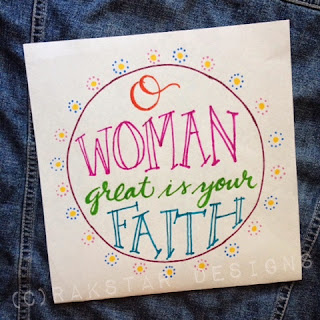 O
WOMAN
great is your
FAITH
(C) RAKSTAR DESIGNS